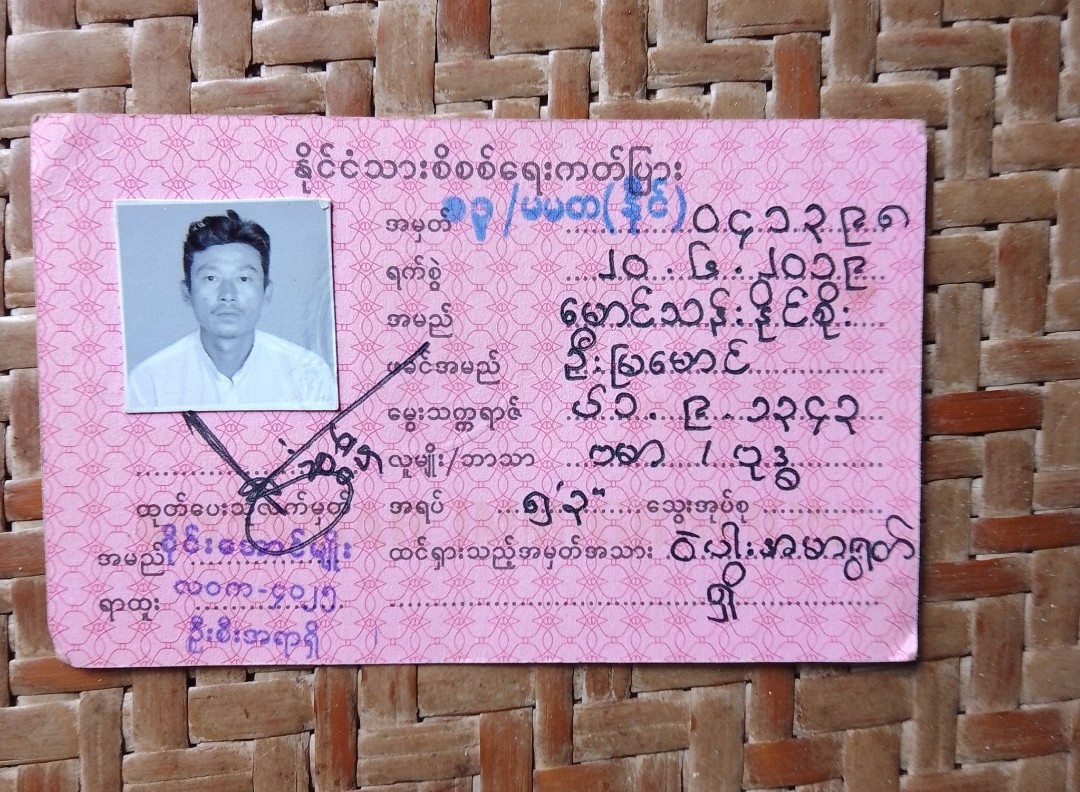 နိုင်ငံသားစိစစ်ရေးကတ်ပြား
အမှတ် ၁၃/မမတ(နိုင်) ၀၄၁၃၉၈
ရက်စွဲ ၂၀.၆.၂၀၁၉
အမည် မောင်သန်းနိုင်စိုး
ဖခင်အမည် ဦးမြမောင်
မွေးသက္ကရာဇ် ၁.၉.၁၃၄၃
လူမျိုး/ဘာသာ ဗမာ / ဗုဒ္ဓ
အရပ် ၅'၃" သွေးအုပ်စု
ထင်ရှားသည့်အမှတ်အသား ဝဲပါးအမာရွတ်
ရှိ
ထုတ်ပေးသူလက်မှတ်
အမည် စိုင်းအောင်မျိုး
လဝက-၄၀၂၅
ရာထူး ဦးစီးအရာရှိ